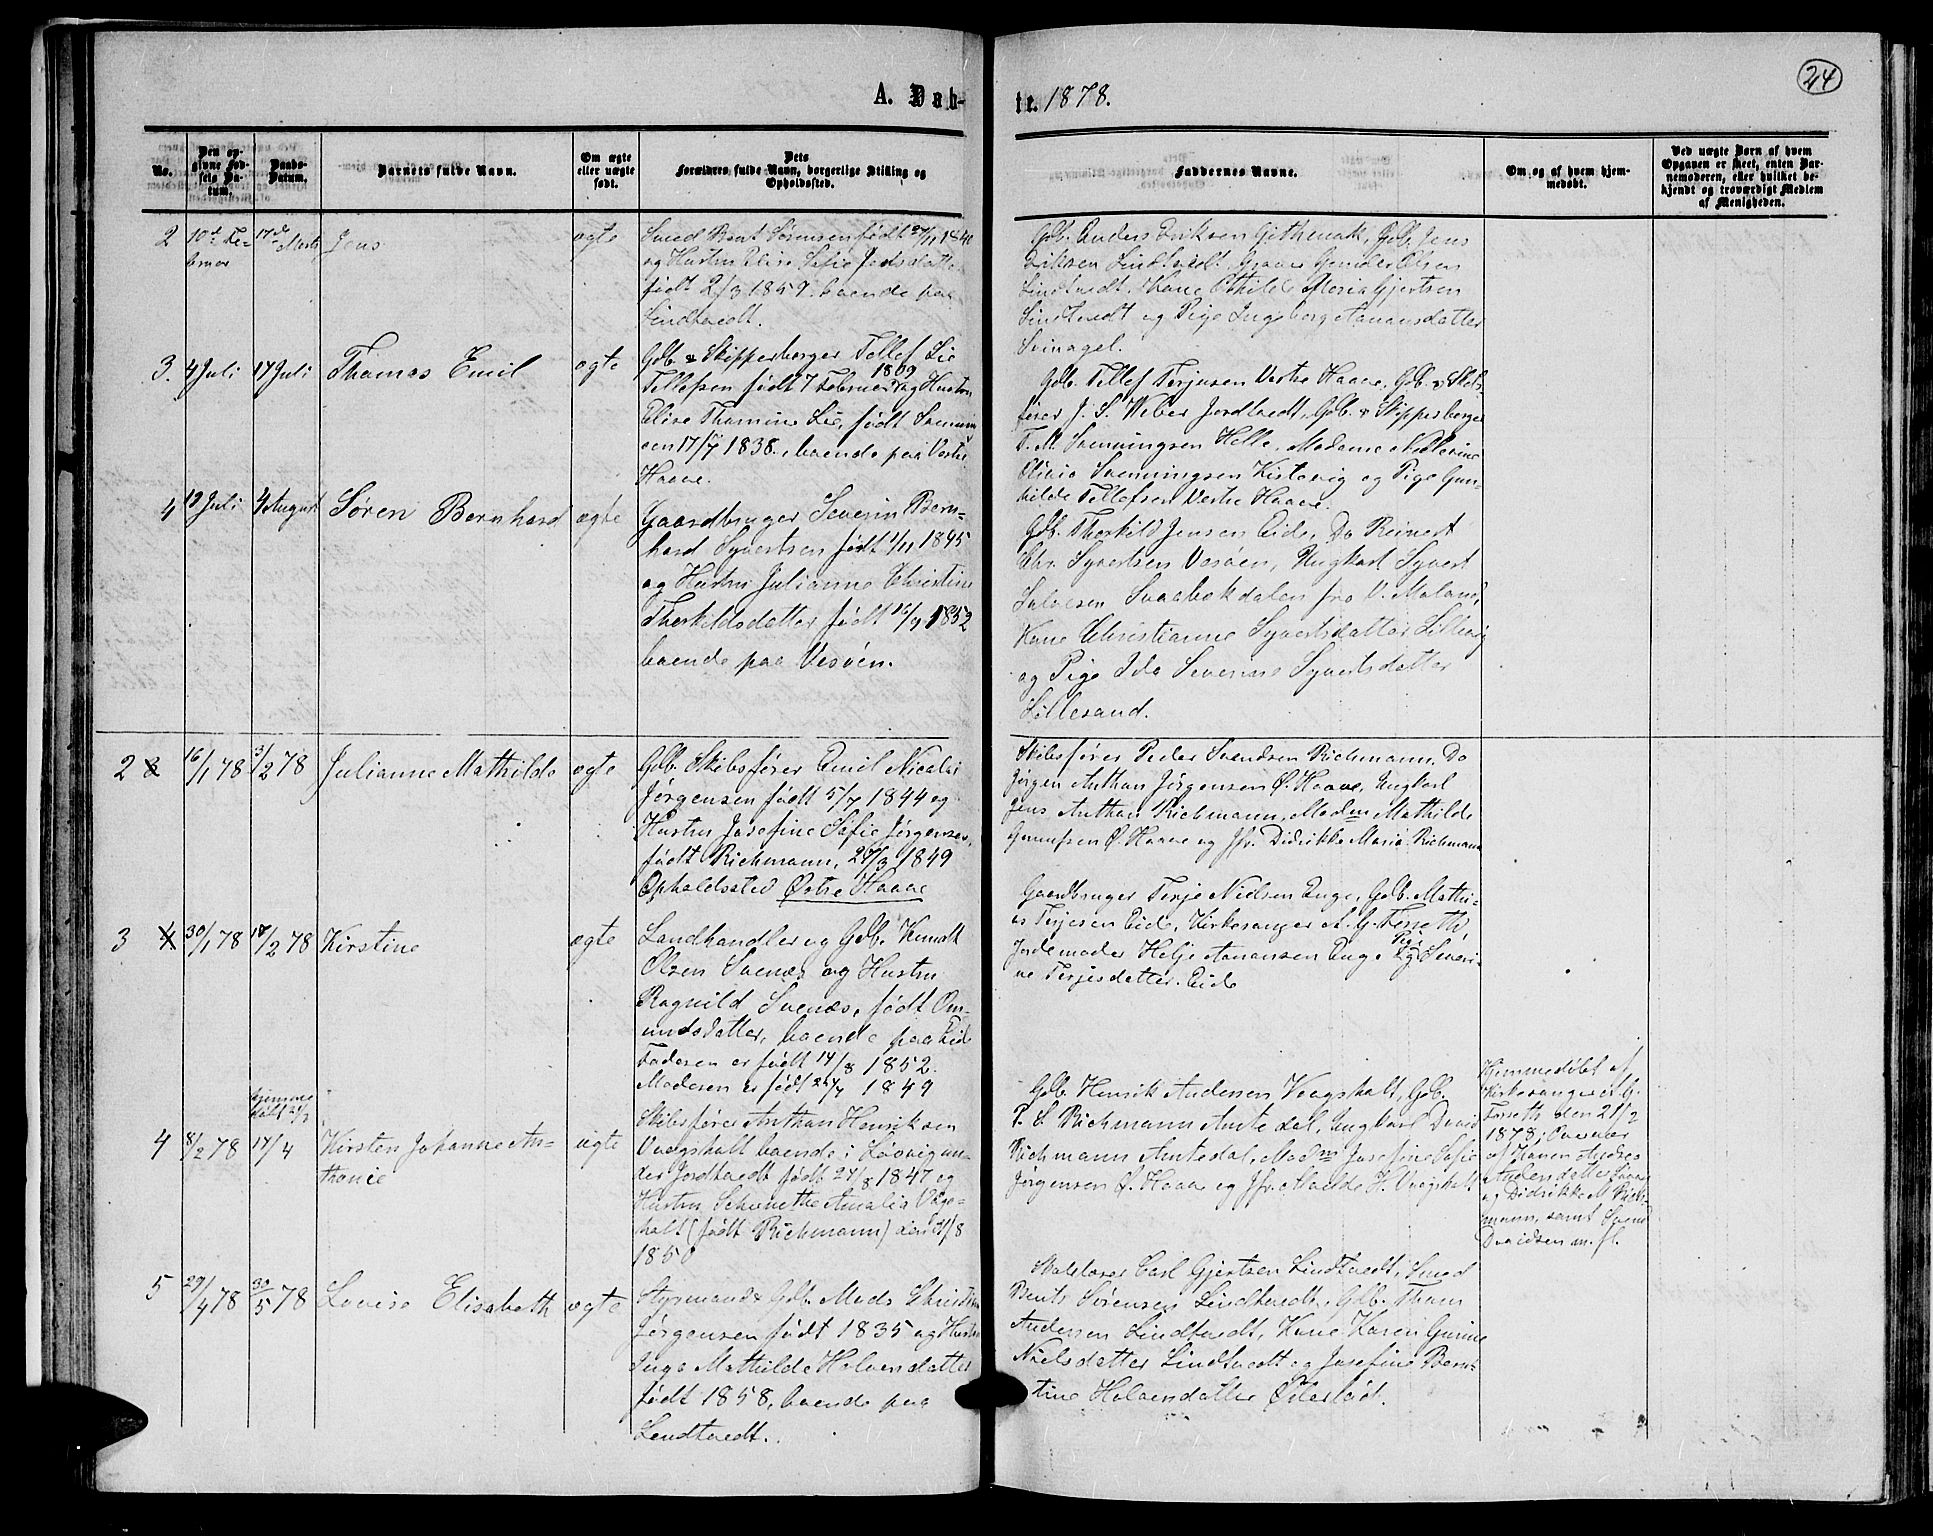 24
A. Dåb-
te. 1878.
No.
Den op-
givne Fød-
sels Da-
tum.
Daabs-
Datum.
Barnets fulde Navn.
Om ægte
eller uægte
født.
Dets
Forældres fulde Navn, borgerlige Stilling og
Opholdssted.
Faddernes Navne.
Om og af hvem hjem-
medøbt.
Ved uægte Børn af hvem
Opgaven er skeet, enten Bar-
nemoderen, eller hvilket be-
kjendt og troværdigt Medlem
af Menigheden.
2
10de Fe-
bruar
17de Marts
Jens
ægte
Smed Bent Sørensen født 27/11 1840
og Hustru Elise Sofie Jansdatter
født 2/3 1859. boende paa
Lindtvedt.
Gdb. Anders Eriksen Githmak, Gdb. Jens
Eriksen Lindtvedt, Gunder Olsen
Lindtvedt, Kone Othilde Maria Gjertsen
Lindtvedt og Pige Ingeborg Aanonsdatter
Svinagel.
3.
4 Juli
17 Juli
Thomas Emil
ægte
Gdb. & Skipperborger Tellef Lie
Tellefsen født 7 Februar 1809 og Hustru
Elise Thomine Lie, født Svennin
sen 17/7 1838., boende paa Vestre
Haave.
Gdb. Tellef Terjusen Vestre Haave, Gdb. & Skibs-
fører J. S. Weber Jordtvedt, Gdb. & Skipperborger
T. M. Svenningsen Helle, Madame
Olivia Svenningsen Kistevig og Pige Gun-
hilde Tellefsen Vestre Haave.
4
12 Juli
4 August
Søren Bernhard
ægte
Gaardbruger Severin Bern-
hard Syvertsen født 1/11 1845
og Hustru Julianne Christine
Therkildsdatter født 16/9 1852
boende paa Vesøen.
Gdb. Therkild Jensen Eide, Do Reinert
Chr. Syvertsen Vesøen, Ungkarl Syvert
Salvesen Svaebekdalen fra V. Moland,
Kone Christianne Syvertsdatter Lillevig
og Pige Ida Severine Syvertsdatter
Lillesand.
2
16/1 78
3/2 78
Julianne Mathilde
ægte
Gdb. Skibsfører Emil Nicolai
Jørgensen født 5/7 1844 og
Hustru Josefine Sofie Jørgensen,
født Richmann, 27/3 1849
Opholdssted Østre Haave
Skibsfører Peder Svendsen Richmann, Do
Jørgen Anthon Jørgensen Ø. Haave, Ungkarl
Jens Anthon Richmann, Madm Mathilde
Gunufsen Ø. Haave og Jfr. Didrikke Maria Richmann
3
30/1 78
18/2 78
Kirstine
ægte
Landhandler og Gdb. Knudt
Olsen Svenæs og Hustru
Ragnild Svenæs, født Om-
undsdatter, boende paa Eide
Faderen er født 14/8 1852.
Moderen er født 24/7 1849
Gaardbruger Terje Nielsen Enge, Gdb. Mathi-
as Terjesen Eide, Kirkesanger A. G. Tesseth,
Jordemoder Helje Aanonsen Enge og Pige Severi-
ne Terjesdatter. Eide
4
8/2 78
hjemme
døbt 21/2
17/4
Kirsten Johanne An-
thonie
ægte
Skibsfører Anthon Henriksen
Vaagshalt boende i Løvvig un-
der Jordtvedt født 27/8 1847 og
Hustru Amalia Vågs-
halt (født Richmann) den 31/8
1850
Gdb. Henrik Andersen Vaagshalt, Gdb.
P. S. Richmann Amtedal, Ungkarl David
Richmann Amtedal, Madm Josefine Sofie
Jørgensen Ø. Haave og Jfr. H. Vaagshalt
Hjemmedøbt af
Kirkesanger A. G.
Tesseth den 21/2
1878; Overvær
af Karen Andrea
Andersdatter
og Didrikke M. Rich-
mann, samt Svend
Davidsen m. fl.
5
29/4 78
30/5 78
Lovise Elisabeth
ægte
Styrmand & Gdb. Mads Christian
Jørgensen født 1835 og Hustru
Inga Mathilde Halvorsdatter
født 1858, boende paa
Lindtvedt.
Matros Carl Gjertsen Lindtvedt, Smed
Bent Sørensen Lindtvedt, Gdb. Thom
Andersen Lindtvedt, Kone Karen Gurine
Nielsdatter Lindtvedt og Josefine Bern-
tine Halvorsdatter